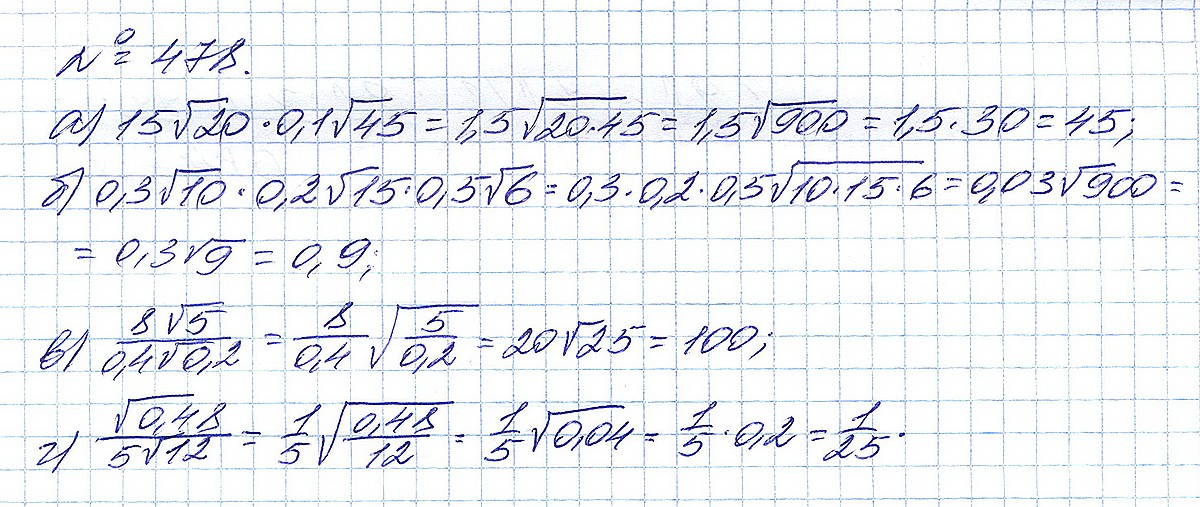 № 478.
а) 15√20 · 0,1√45 = 1,5√(20·45) = 1,5√900 = 1,5·30 = 45;
б) 0,3√10 · 0,2√15 · 0,5√6 = 0,3·0,2·0,5√(10·15·6) = 0,03√900 =
= 0,3√9 = 0,9;
в) (8√5)/(0,4√0,2) = 8/0,4 √(5/0,2) = 20√25 = 100;
г) √0,48/(5√12) = 1/5 √(0,48/12) = 1/5 √0,04 = 1/5 · 0,2 = 1/25.